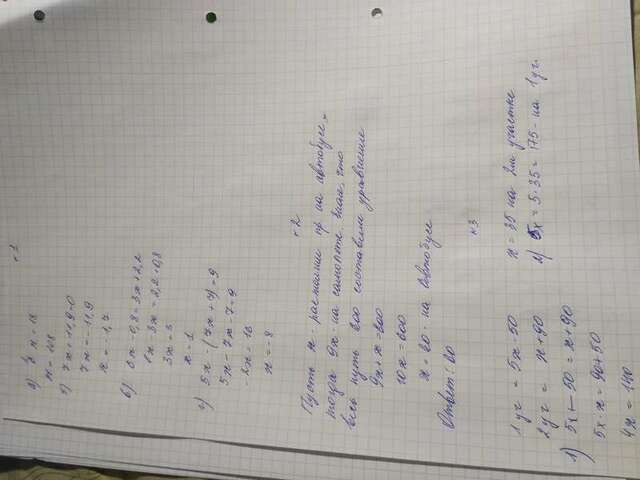 №1
а) ⅓ x = 18
x = 108
б) 7x + 11,9 = 0
7x = -11,9
x = -1,7
в) 6x - 0,8 = 3x + 2,2
6x - 3x = 2,2 + 0,8
3x = 3
x = 1
г) 5x - (7x + 7) = 9
5x - 7x - 7 = 9
2x = 16
x = -8
№2
Пусть x - расстояние пр на автобусе,
тогда 9x - на самолёте. Зная, что
весь путь 800 составили уравнение
9x + x = 800
10x = 800
x = 80 - на автобусе
Ответ: 80
№3
1 уч = 5x - 50
2 уч = x + 90
1) 5x - 50 = x + 90
5x - x = 90 + 50
4x = 140
x = 35 на 2м участке
2) 5x = 5 · 35 = 175 - на 1 уч.